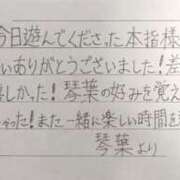 今日遊んでくださった本指様
いありがとうございました!差
嬉しかった!琴葉の好みを覚え
った!また一緒に楽しい時間を
琴葉より